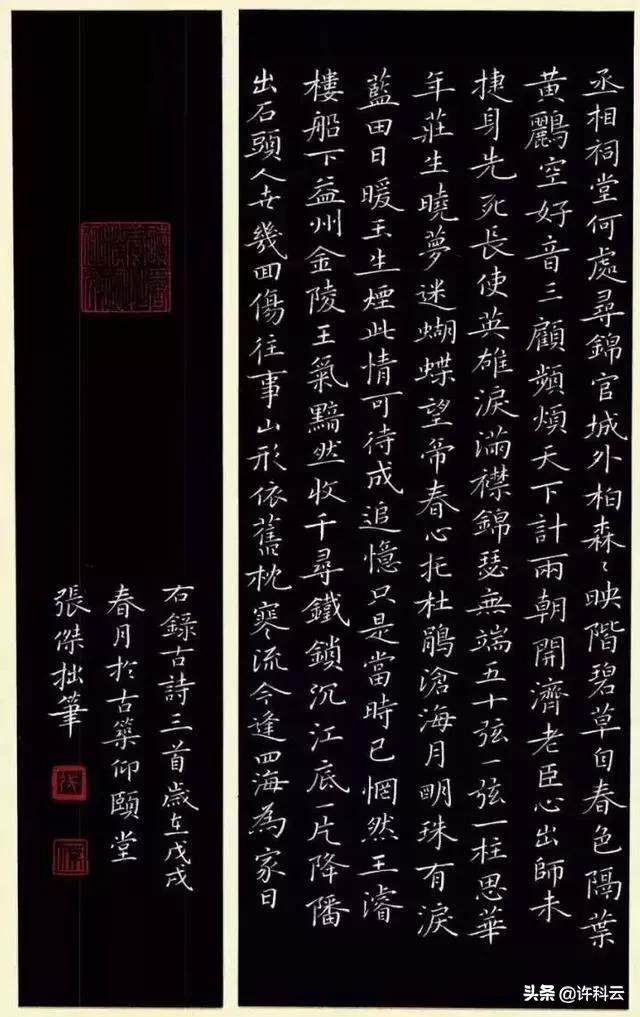 丞相祠堂何處尋錦官城外柏森〻映階碧草自春色隔葉
黃鸝空好音三顧頻煩天下計兩朝開濟老臣心出師未
捷身先死長使英雄淚滿襟錦瑟無端五十弦一弦一柱思華
年莊生曉夢迷蝴蝶望帝春心托杜鵑滄海月明珠有淚
藍田日暖玉生煙此情可待成追憶只是當時已惘然王濬
樓船下益州金陵王氣黯然收千尋鐵鎖沉江底一片降旛
出石頭人世幾回傷往事山形依舊枕寒流今逢四海為家日
右錄古詩三首歲在戊戌
春月於古築仰頤堂
張傑拙筆
头条 @许科云